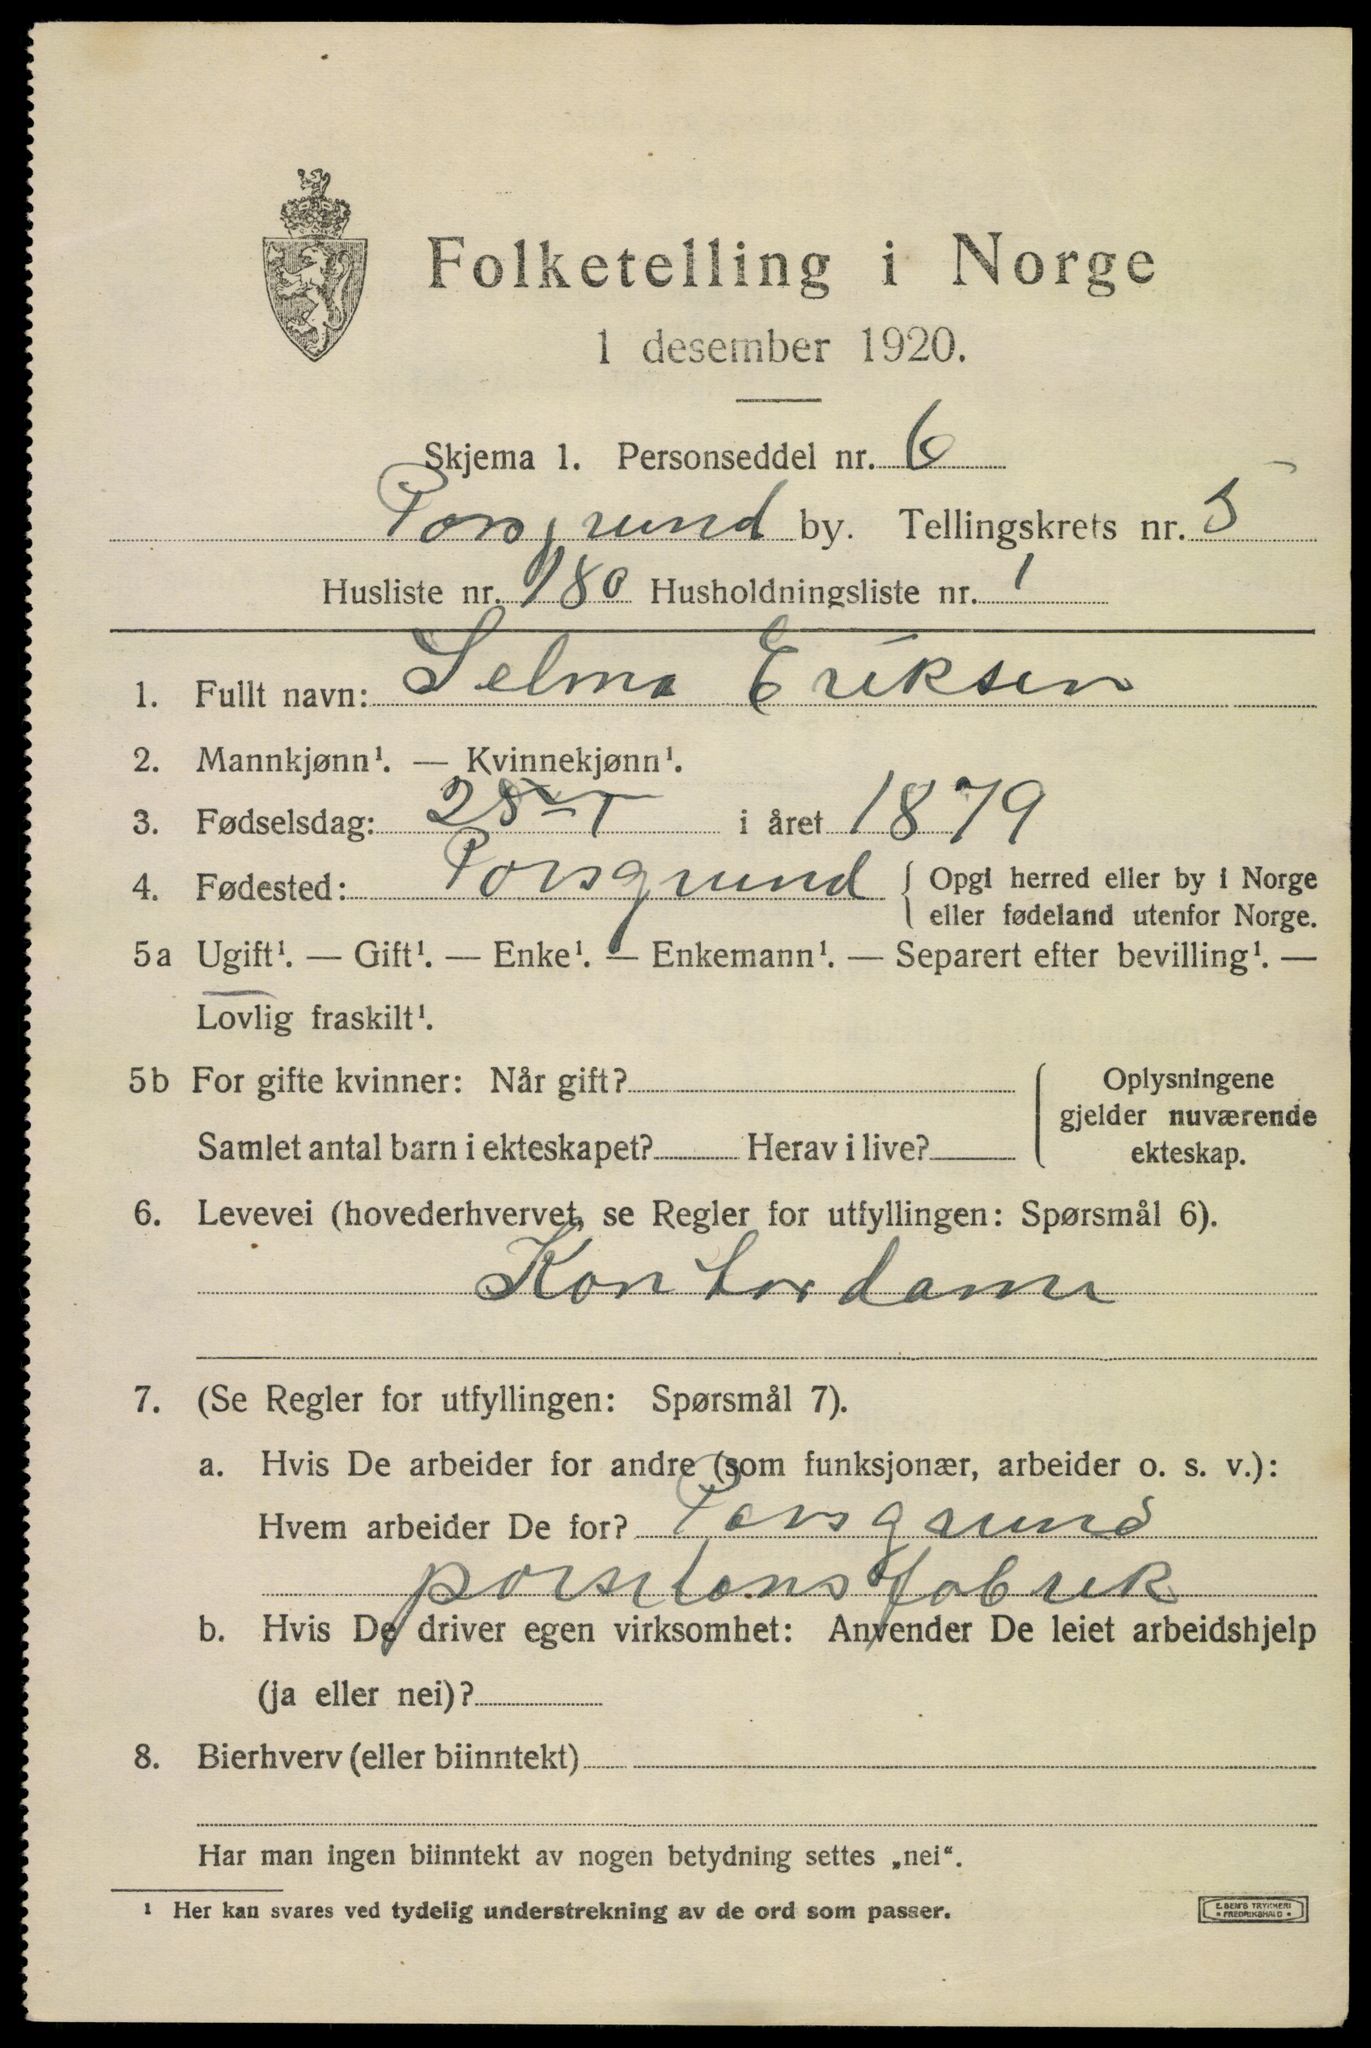 Folketelling i Norge
1 desember 1920.
Skjema 1. Personseddel nr. 6
Porsgrund by. Tellingskrets nr. 5
Husliste nr. 180 Husholdningsliste nr. 1
1. Fullt navn: Selma Eriksen
2. Mannkjønn¹. — Kvinnekjønn¹.
3. Fødselsdag: i året 1879
4. Fødested: Porsgrund { Opgi herred eller by i Norge
eller fødeland utenfor Norge.
5a Ugift¹. — Gift¹. — Enke¹. — Enkemann¹. — Separert efter bevilling¹. —
Lovlig fraskilt¹.
5b For gifte kvinner: Når gift? { Oplysningene
gjelder nuværende
Samlet antal barn i ekteskapet? Herav i live? ekteskap.
6. Levevei (hovederhvervet, se Regler for utfyllingen: Spørsmål 6).
Kontordame
7. (Se Regler for utfyllingen: Spørsmål 7).
a. Hvis De arbeider for andre (som funksjonær, arbeider o. s. v.):
Hvem arbeider De for? Porsgrund
porselensfabrik
b. Hvis De driver egen virksomhet: Anvender De leiet arbeidshjelp
(ja eller nei)?
8. Bierhverv (eller biinntekt)
Har man ingen biinntekt av nogen betydning settes „nei“.
¹ Her kan svares ved tydelig understrekning av de ord som passer.
E. SEM'S TRYKKERI
• FREDRIKSHALD •